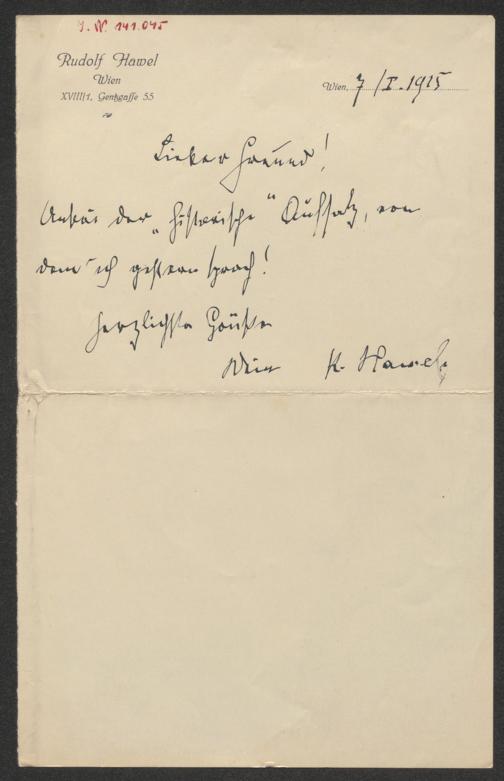 J. N. 141.045
Rudolf Hawel
Wien
XVIII/1, Gentzgasse 55
Wien, 7/I. 1915
Lieber Freund!
der „historische“ Aufsatz, von
dem ich gestern sprach!
Herzlichste Grüße
R. Hawel